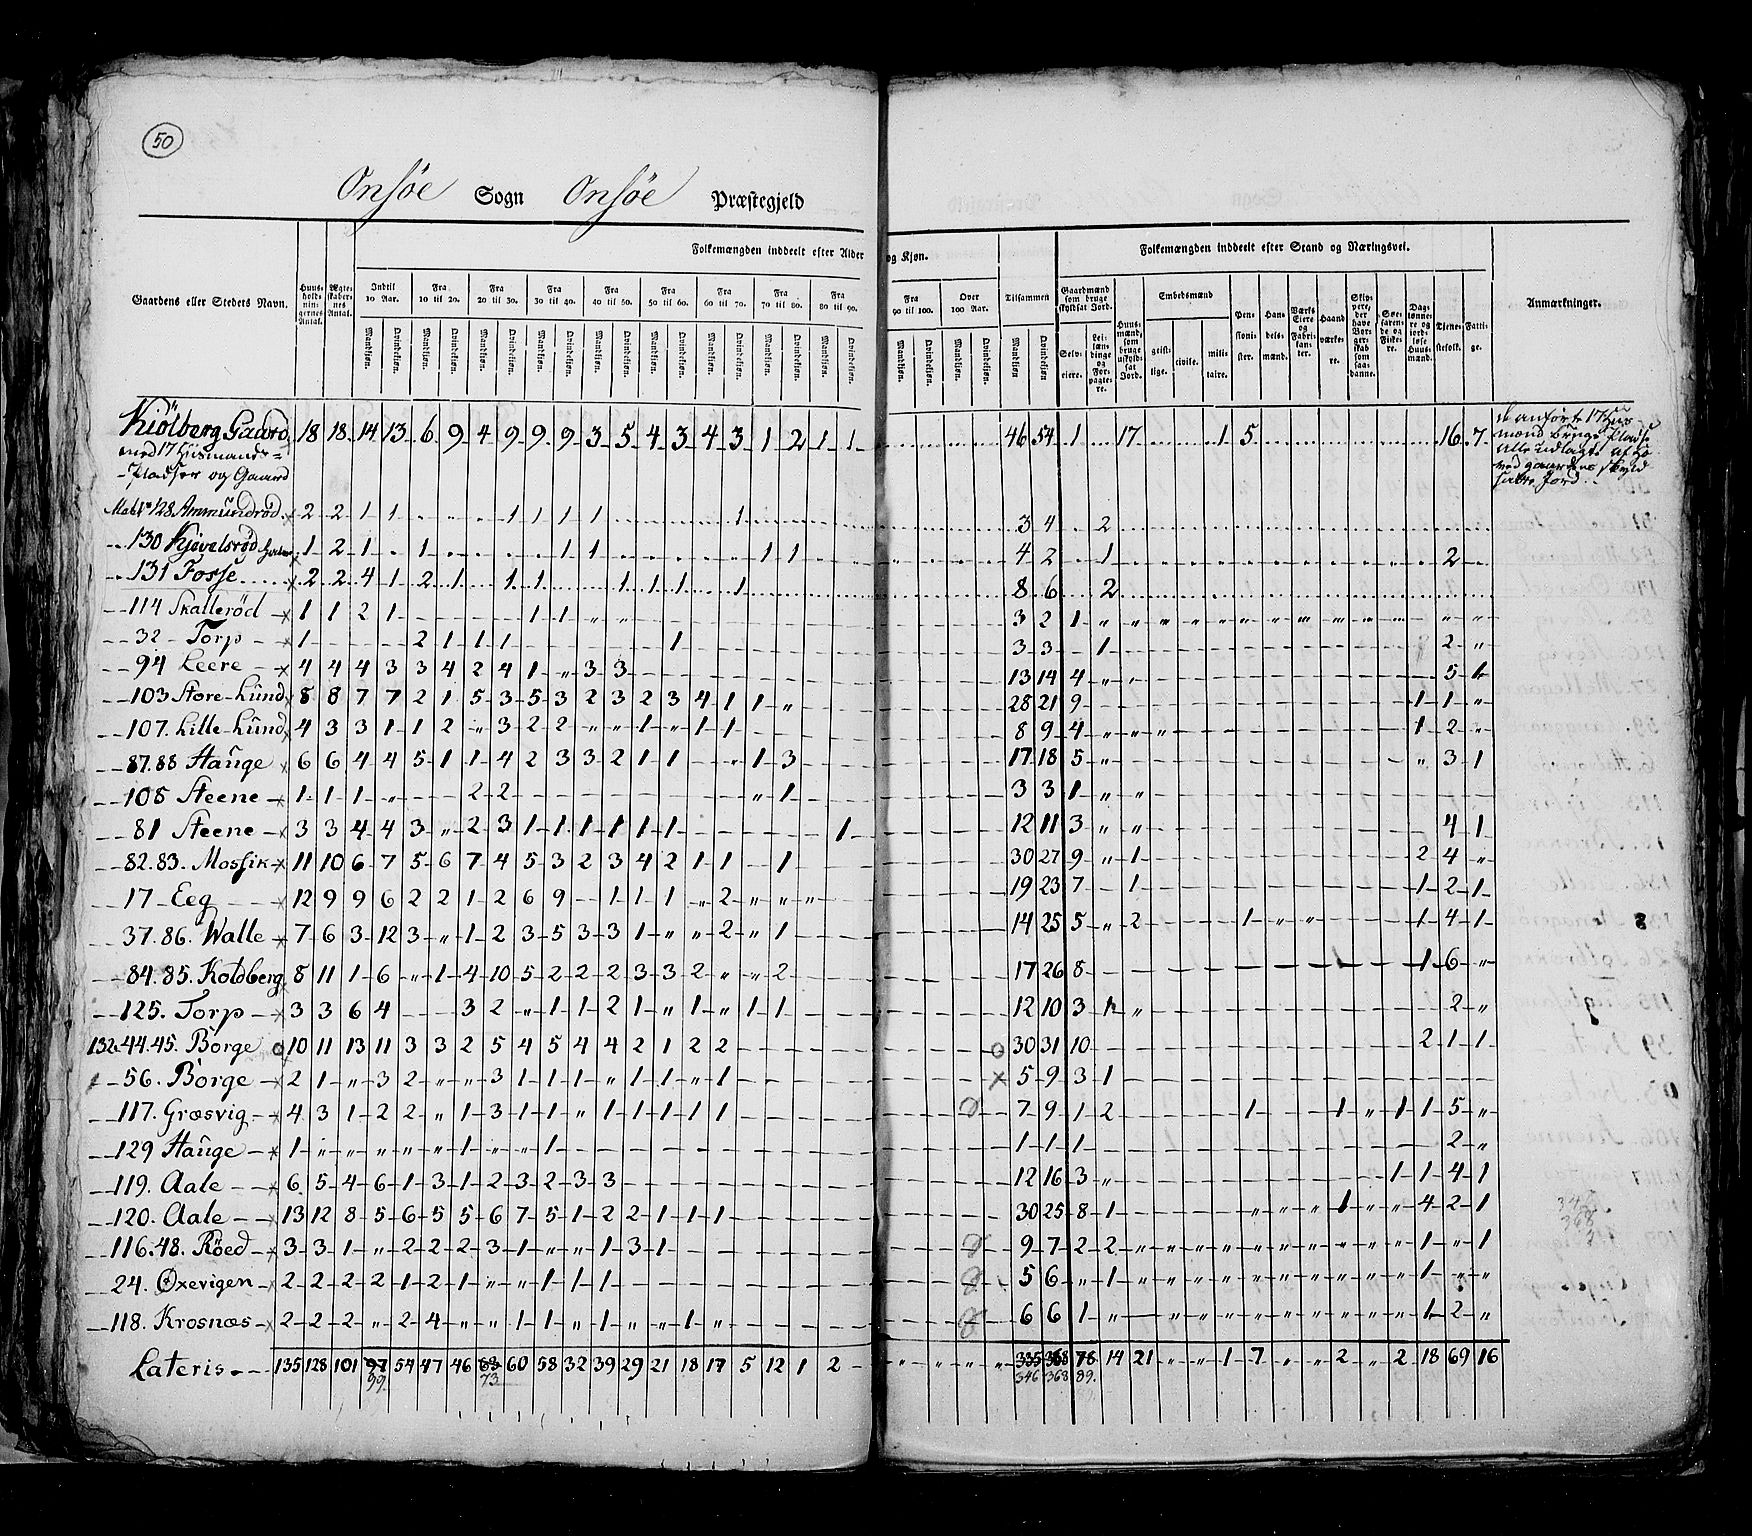 50
Onsöe Sogn Onsöe Præstegjeld
Folkemængden inddeelt efter Alder og Kjøn.
Folkemængden inddeelt efter Stand og Næringsvei.
Gaardens eller Steders Navn.
Huusholdningernes Antal.
Ægteskabernes Antal.
Indtil 10 Aar.
Fra 10 til 20.
Fra 20 til 30.
Fra 30 til 40.
Fra 40 til 50.
Fra 50 til 60.
Fra 60 til 70.
Fra 70 til 80.
Fra 80 til 90.
Fra 90 til 100.
Over 100 Aar.
Tilsammen
Mandkjøn. Qvindekjøn.
Gaardmænd som bruge skyldsat Jord.
Selveiere.
Leilændinge og Forpagtere.
Huusmænd, som bruge uskyldsat Jord.
Embedsmænd
geistlige. civile. militaire.
Pensionister.
Handelsmænd.
Værks Eiere og Fabrikanter.
Haandværkere.
Skippere, der have Borgerskab som saadanne.
Søefarende og Fiskere.
Daglønnere og jordløse Huusmænd.
Tjenestefolk.
Fattige.
Anmærkninger.
Kiölberg Gaard 18 18 14 13 6 9 4 9 9 9 3 5 4 3 4 3 1 2 1 1 46 54 1 17 1 5 16 7
med 17 Huusmands=
Pladser og Gaard
de anförte 17 Huus
mænd bruge Pladse
alle udlagte af Ho
vedgaardens skyld
satte Jord.
Matr. No 128. Ammundröd 2 2 1 1 1 1 1 1 1 3 4 2
130 Kjövelsröd 1 2 1 1 1 1 1 1 4 2 1 2
131 Fosse 2 2 4 1 2 1 1 1 1 1 1 1 8 6 2
114 Skalleröd 1 1 2 1 1 1 3 2 1
32 Torp 1 2 1 1 1 1 3 3 1 2
94 Leere 4 4 4 3 3 4 2 4 1 „ 3 3 13 14 4 5 1
103 Store-Lund 8 8 7 7 2 1 5 3 5 3 2 3 2 3 4 1 1 „ 28 21 9 1 1 „
107. Lille-Lund 4 3 3 1 1 2 „ 3 2 2 „ „ 1 „ 1 1 8 9 4 1 2 „
87.88 Hauge 6 6 4 4 5 1 1 4 2 3 3 2 1 1 „ 1 3 17 18 5 „ „ 3 1
108 Steene 1 1 1 „ 2 2 „ 1 3 3 1 „ „
81 Steene 3 3 4 4 3 „ 2 3 1 1 1 1 1 1 1 12 11 3 „ „ 4 1
82.83. Mossik 11 10 6 7 5 6 7 4 5 3 2 3 4 2 1 1 1 30 27 9 „ 1 2 4 „
17 Eeg 12 9 9 6 2 2 1 2 6 9 1 1 1 „ 2 „ „ „ 19 23 7 1 1 2 1
37.86. Walle 7 6 3 12 3 „ 1 2 3 5 3 3 1 „ „ 2 „ 1 14 25 5 „ 2 1 „ „ 1 4 1
84.85. Koldberg 8 11 1 6 „ 1 4 10 5 2 2 2 3 3 2 „ „ 2 17 26 8 1 6 „
125. Torp 3 3 6 4 3 2 „ 1 1 2 1 „ 1 „ 1 1 12 10 3 1 „ 2 „
132. 44.45. Borge 10 11 13 11 3 3 2 5 4 5 4 4 2 1 2 2 30 31 10 2 1 1
56. Borge 2 1 „ 3 2 „ „ 3 1 1 1 „ 1 1 „ 1 5 9 3 1
117. Græsvig 4 3 1 2 2 „ 1 3 1 1 „ 1 1 1 1 1 7 9 1 2 1 „ „ 1 „ 1 1 5 „
129 Hauge 1 „ „ „ „ „ 1 „ „ 1 1 1 1 2 „
119. Aale 6 5 4 6 1 3 1 2 3 2 3 3 12 16 3 „ 1 1 4 1
120. Aale 13 12 8 5 6 5 5 6 7 5 1 2 2 1 1 1 30 25 8 1 „ „ „ 1 „ „ 4 2 1
116.48. Röed 3 3 1 „ 2 2 2 3 1 „ „ 1 3 1 9 7 2 2 „ „ „ „ „ „ „ „ „ „ 1 „ 1
24. Oxevigen 2 2 2 2 1 2 1 „ „ 1 1 1 5 6 „ 1 „ „ „ „ „ „ „ „ „ „ 1 „ „
118. Krosnæs 2 2 2 „ 2 4 „ „ 1 1 „ 1 „ „ 1 „ 6 6 1 „ „ „ „ „ „ „ „ „ „ 1 2 „
Lateris 135 128 101 97 54 47 46 83 60 58 32 39 29 21 18 17 5 12 1 2 „ „ „ „ 335 368 78 14 21 „ „ 1 7 „ „ 2 „ 2 18 69 16
99. 73 346 368 89.